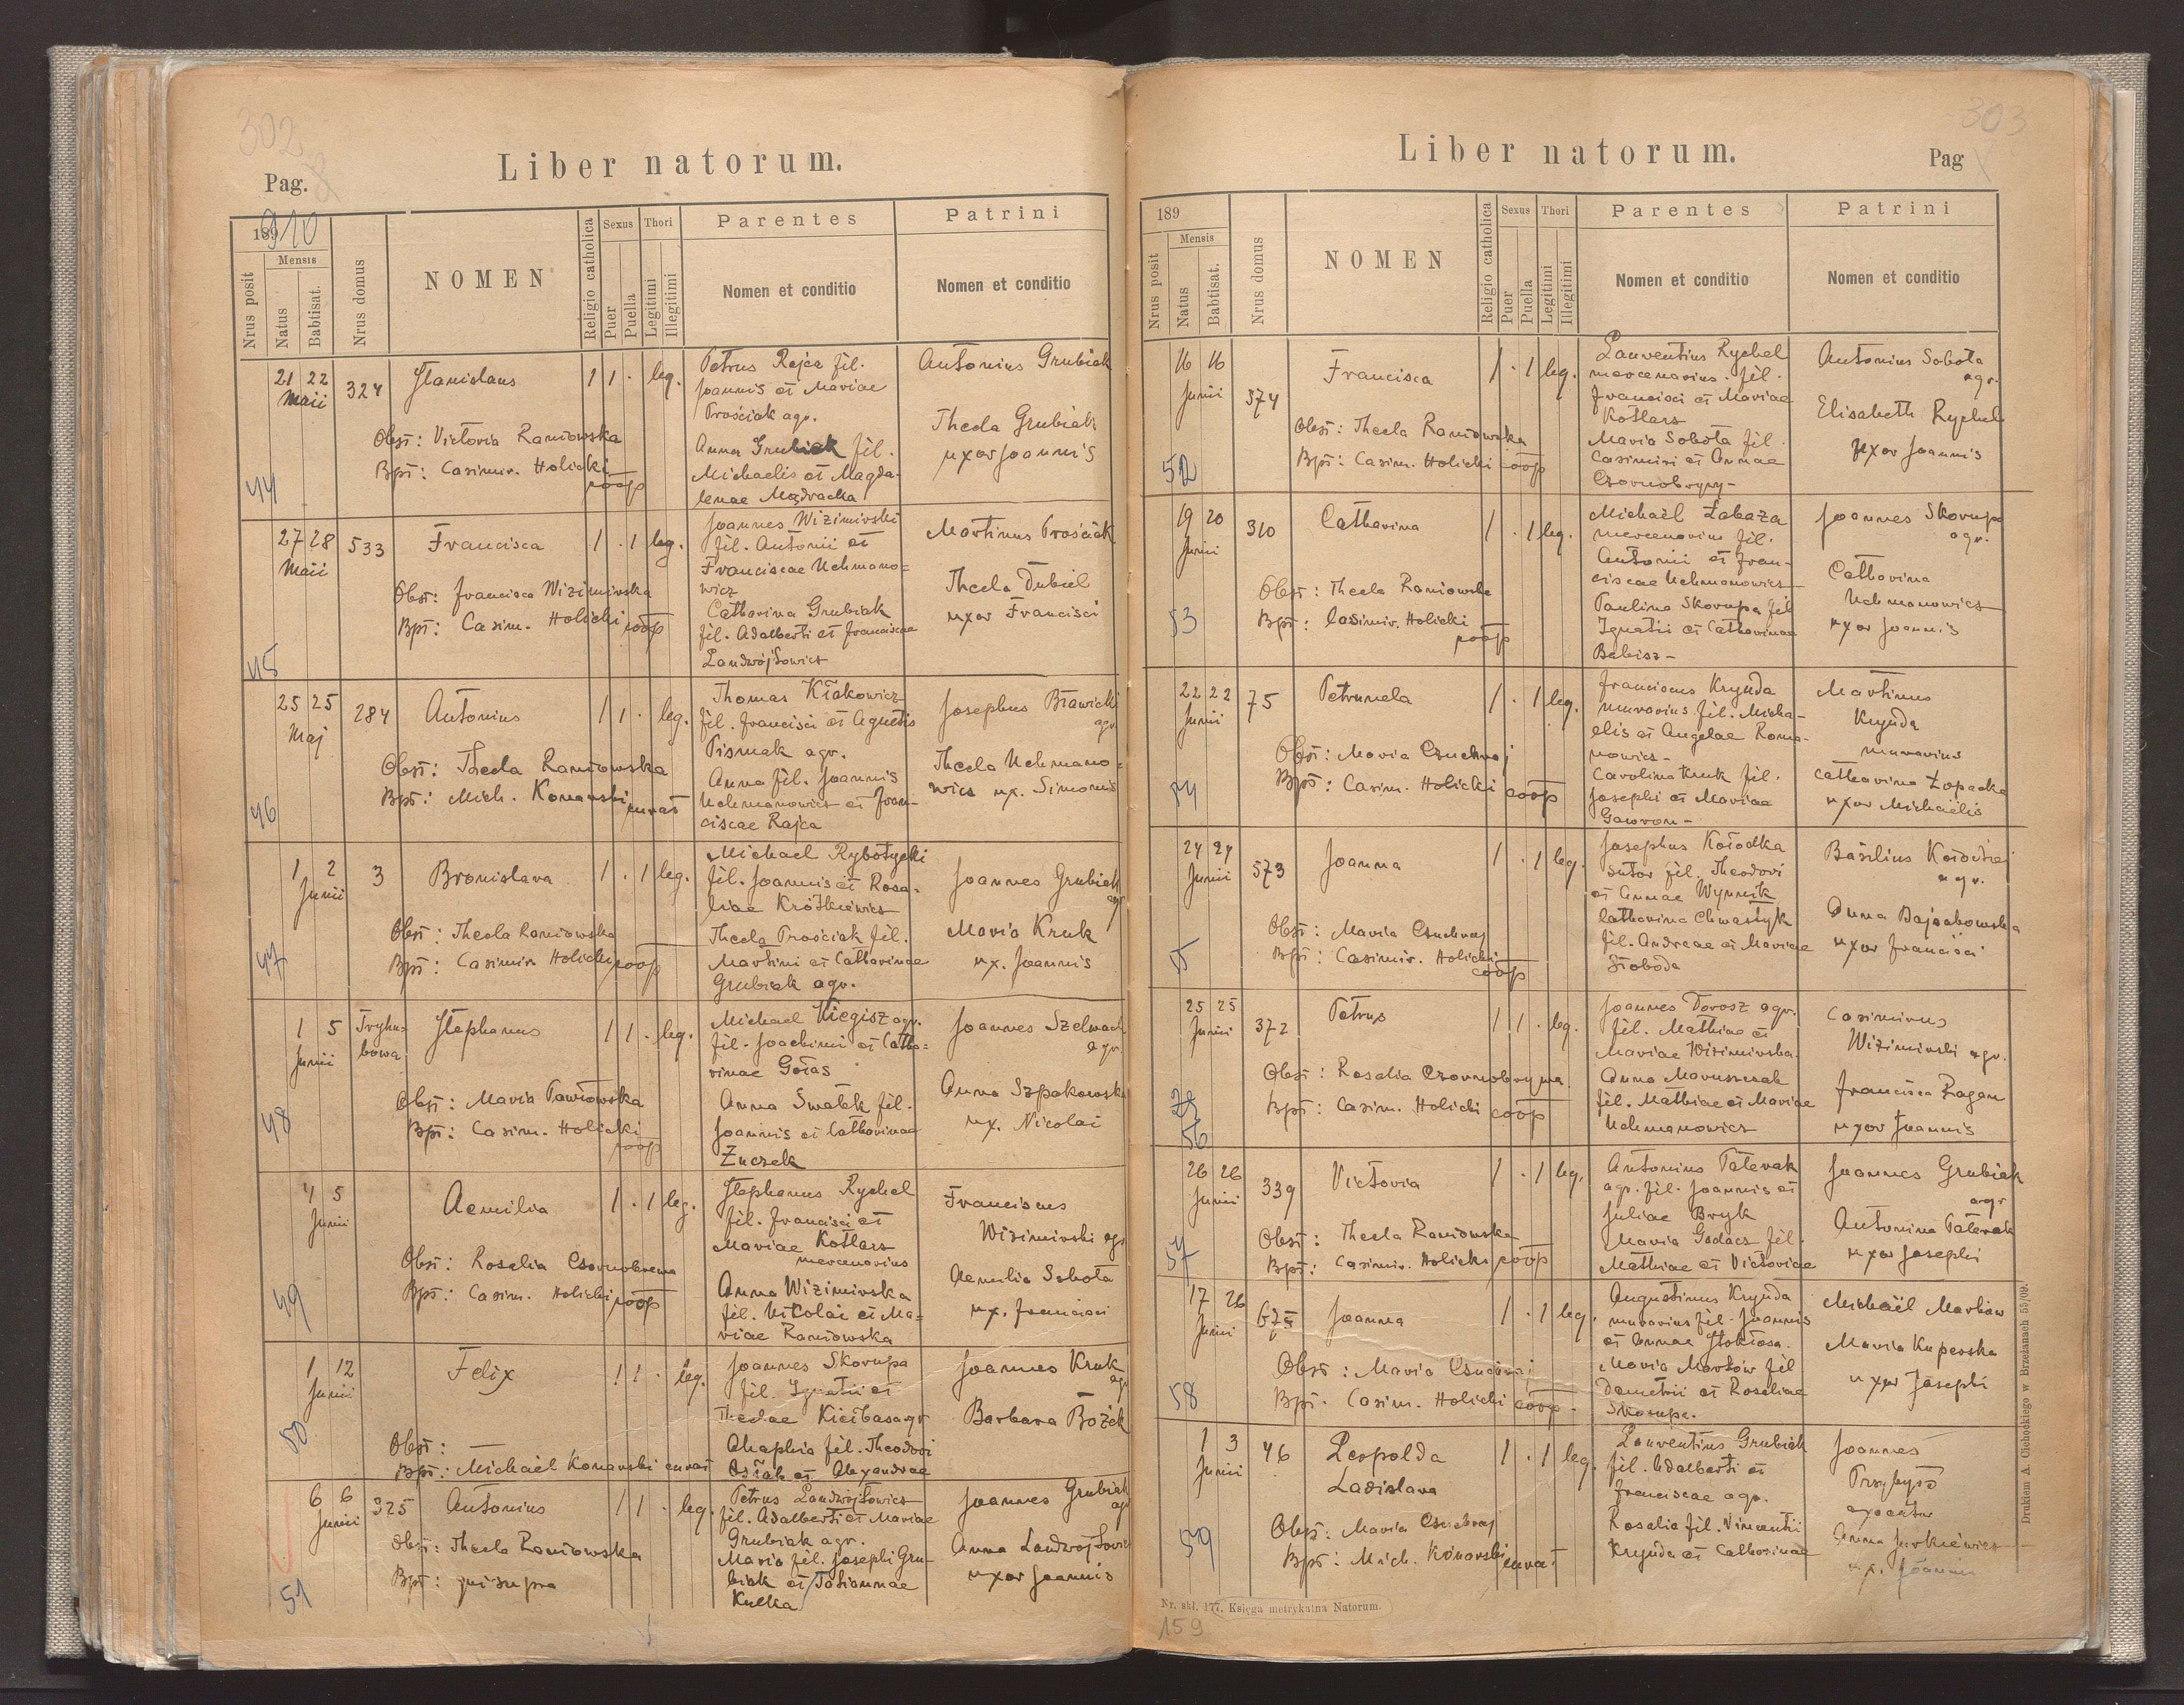 302
Pag.
Liber natorum.
1910
Mensis
Nrus posit
Natus
Babtisat.
Nrus domus
NOMEN
Religio catholica
Sexus
Puer
Puella
Thori
Legitimi
Illegitimi
Parentes
Nomen et conditio
Patrini
Nomen et conditio
44
21 22
Maii
324
Stanislaus
1 1 · leg.
Obst: Victoria Raniowska
Bpt: Casimir. Holicki
coop
Petrus Rajca fil.
Joannis et Mariae
Prościak agr.
Anna Grubiak fil.
Michaelis et Magda-
lenae Mądracka
Antonius Grubiak
Thecla Grubiak
uxor Joannis
45
27 28
Maii
533
Francisca
1 · 1 leg.
Obst: Francisca Wizimirska
Bpt: Casim. Holicki coop
Joannes Wizimirski
fil. Antonii et
Franciscae Uchmano=
wicz
Catharina Grubiak
fil. Adalberti et Franciscae
Landwójtowicz
Martinus Prościak
Thecla Dubiel
uxor Francisci
46
25 25
Maj
284
Antonius
1 1 · leg.
Obst: Thecla Raniowska
Bpt: Mich. Konarski curat
Thomas Kłakowicz
fil. Francisci et Agnetis
Pismak agr.
Anna fil. Joannis
Uchmanowicz et Fran-
ciscae Rajca
Josephus Brawicki
agr.
Thecla Uchmano=
wicz ux. Simonis
47
1 2
Junii
3
Bronislava
1 · 1 leg.
Obst: Thecla Raniowska
Bpt: Casimir Holicki coop
Michael Rybotycki
fil. Joannis et Rosa-
liae Krótkiewicz
Thecla Prościak fil.
Martini et Catharinae
Grubiak agr.
Joannes Grubiak
agr
Maria Kruk
ux. Joannis
48
1 5
Junii
Tryhu=
bowa
Stephanus
1 1 · leg.
Obst: Maria Pawłowska
Bpt: Casim. Holicki
coop
Michael Kiegisz agr.
fil. Joachimi et Catha=
rinae Gołas
Anna Swatek fil.
Joannis et Catharinae
Żuczek
Joannes Szelwach
agr.
Anna Szpakowska
ux. Nicolai
49
4 5
Junii
Aemilia
1 · 1 leg.
Obst: Rosalia Czornobrewa
Bpt: Casim. Holicki coop
Stephanus Rychel
fil. Francisci et
Mariae Kotlars
mercenarius
Anna Wizimirska
fil. Nicolai et Ma=
riae Raniowska
Franciscus
Wizimirski agr
Aemilia Sobota
ux. Francisci
50
1 12
Junii
Felix
1 1 · leg.
Obst:
Bpt: Michaël Konarski curat
Joannes Skorupa
fil. Ignatii et
Theclae Kiełbasa agr
Ahaphia fil. Theodori
Osiak et Alexandrae
Joannes Kruk
agr
Barbara Bożek
51
6 6
Junii
325
Antonius
1 1 · leg.
Obst: Thecla Raniowska
Bpt: qui supra
Petrus Landwojtowicz
fil. Adalberti et Mariae
Grubiak agr.
Maria fil. Josephi Gru-
biak et Tatiannae
Kulka
Joannes Grubiak
agr
Anna Landwojtowicz
uxor Joannis
303
Liber natorum.
Pag
189
Mensis
Nrus posit
Natus
Babtisat.
Nrus domus
NOMEN
Religio catholica
Sexus
Puer
Puella
Thori
Legitimi
Illegitimi
Parentes
Nomen et conditio
Patrini
Nomen et conditio
52
16 16
Junii
374
Francisca
1 · 1 leg.
Obst: Thecla Raniowska
Bpt: Casim. Holicki coop
Laurentius Rychel
mercenarius. fil.
Francisci et Mariae
Kotlars
Maria Sobota fil.
Casimiri et Annae
Czornobrywy-
Antonius Sobota
agr.
Elisabeth Rychel
uxor Joannis
53
19 20
Junii
310
Catharina
1 · 1 leg.
Obst: Thecla Raniowska
Bpt: Casimir. Holicki
coop
Michaël Łabaza
mercenarius fil.
Antonii et Fran-
ciscae Uchmanowicz
Paulina Skorupa fil
Ignatii et Catharinae
Babisz-
Joannes Skorupa
agr.
Catharina
Uchmanowicz
uxor Joannis
54
22 22
Junii
75
Petrunela
1 · 1 leg.
Obst: Maria Czuchraj
Bpt: Casim. Holicki coop
Franciscus Krynda
murarius fil. Micha-
elis et Angelae Roma-
nowicz-
Carolina Kruk fil.
Josephi et Mariae
Gawron-
Martinus
Krynda
murarius
Catharina Łopacka
uxor Michaëlis
55
24 24
Junii
573
Joanna
1 · 1 leg.
Obst: Maria Czuchraj
Bpt: Casimir. Holicki
coop
Josephus Kołodka
sutor fil. Theodori
et Annae Wynnik
Catharina Chwastyk
fil. Andreae et Mariae
Słoboda
Basilius Kołodziej
agr.
Anna Bajsakowska
uxor Francisci
56
25 25
Junii
372
Petrus
1 1 · leg.
Obst: Rosalia Czornobrywa.
Bpt: Casim. Holicki coop
Joannes Dorosz agr.
fil. Mathiae et
Mariae Wizimirska.
Anna Maruszczak
fil. Mathiae et Mariae
Uchmanowicz
Casimirus
Wizimirski agr.
Francisca Łagan
uxor Joannis
57
26 26
Junii
339
Victoria
1 · 1 leg.
Obst: Thecla Raniowska
Bpt: Casimir. Holicki coop
Antonius Paterak
agr. fil. Joannis et
Juliae Bryk
Maria Gadacz fil.
Mathiae et Victoriae
Joannes Grubiak
agr
Antonina Paterak
uxor Josephi
58
17 26
Junii
Joanna
1 · 1 leg.
Obst: Maria Czuchraj
Bpt. Casim. Holicki coop.
Augustinus Krynda
murarius fil. Joannis
et Annae Stokłosa.
Maria Martów fil
Demetrii et Rosaliae
Skorupa.
Michaël Markiw
Maria Kuperska
uxor Josephi
59
1 3
Junii
46
Leopolda
Ladislava
1 · 1 leg.
Obst: Maria Czuchraj
Bpt: Mich. Konarski curat
Laurentius Grubiak
fil. Adalberti et
Franciscae agr.
Rosalia fil. Vincentii
Krynda et Catharinae
Joannes
Anna Jurkiewicz
ux. Joannis
Nr. skł. 177. Księga metrykalna Natorum.
159
Drukiem A. Cichockiego w Brzeżanach 55/09.